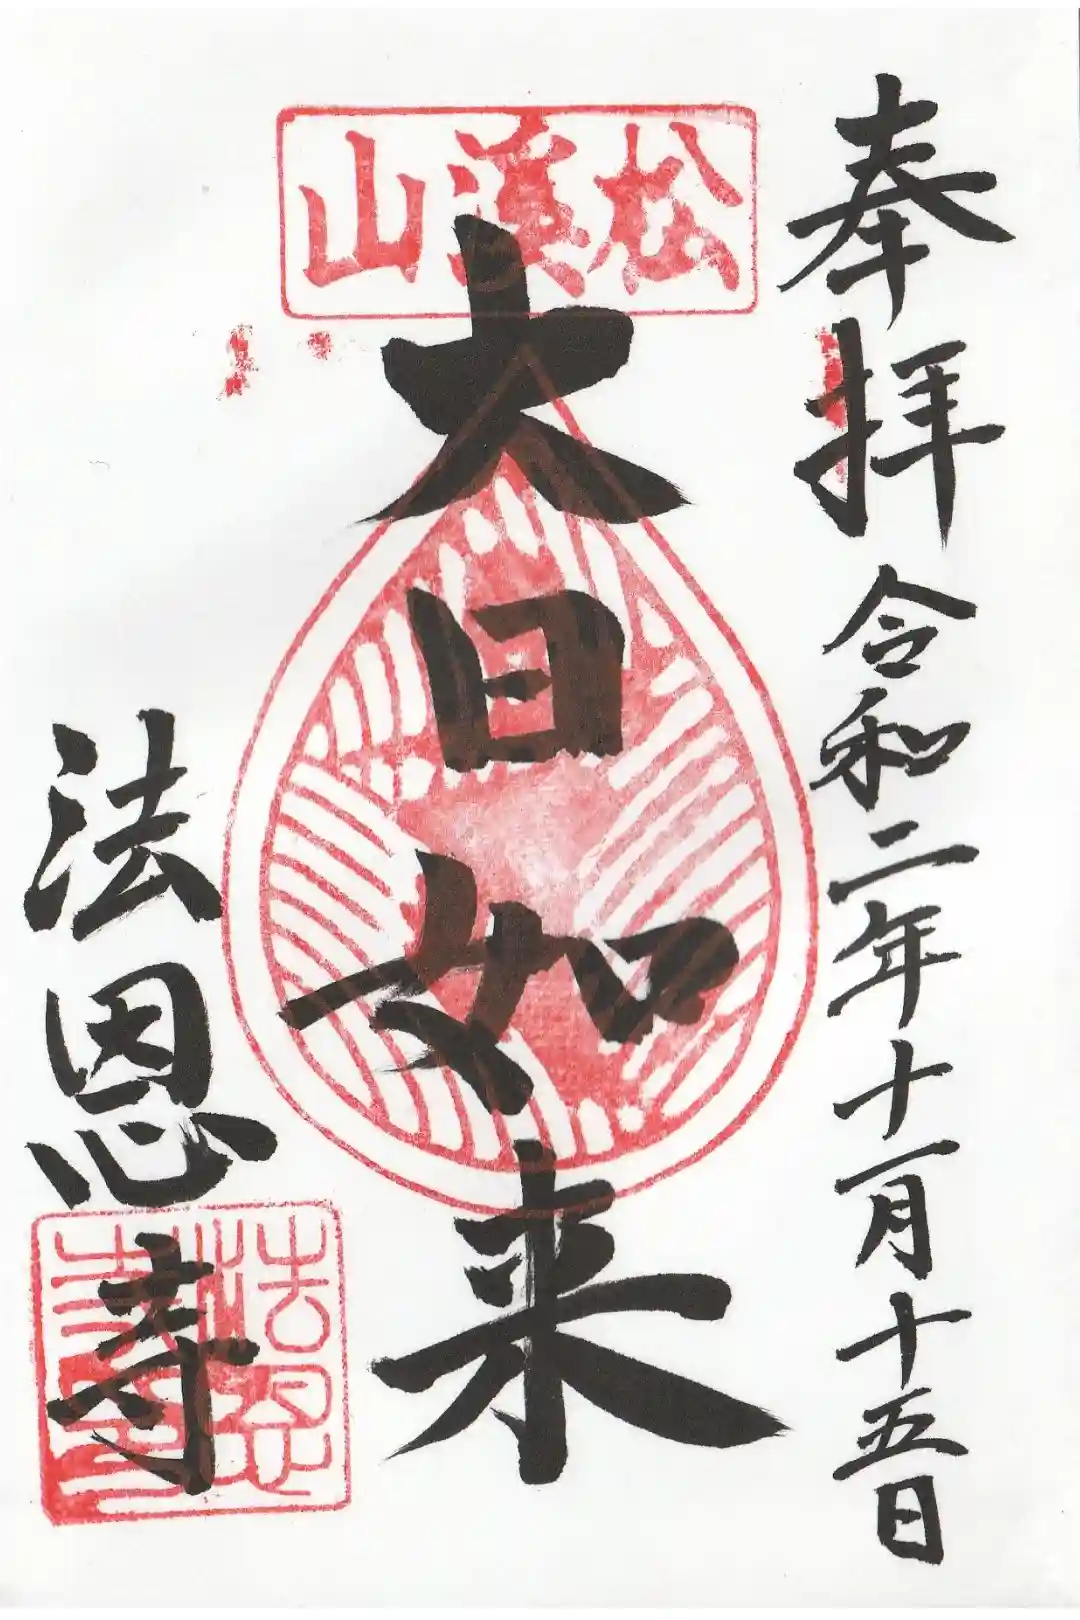 奉拝 令和二年十一月十五日
松溪山
大日如来
法恩寺
法恩寺印